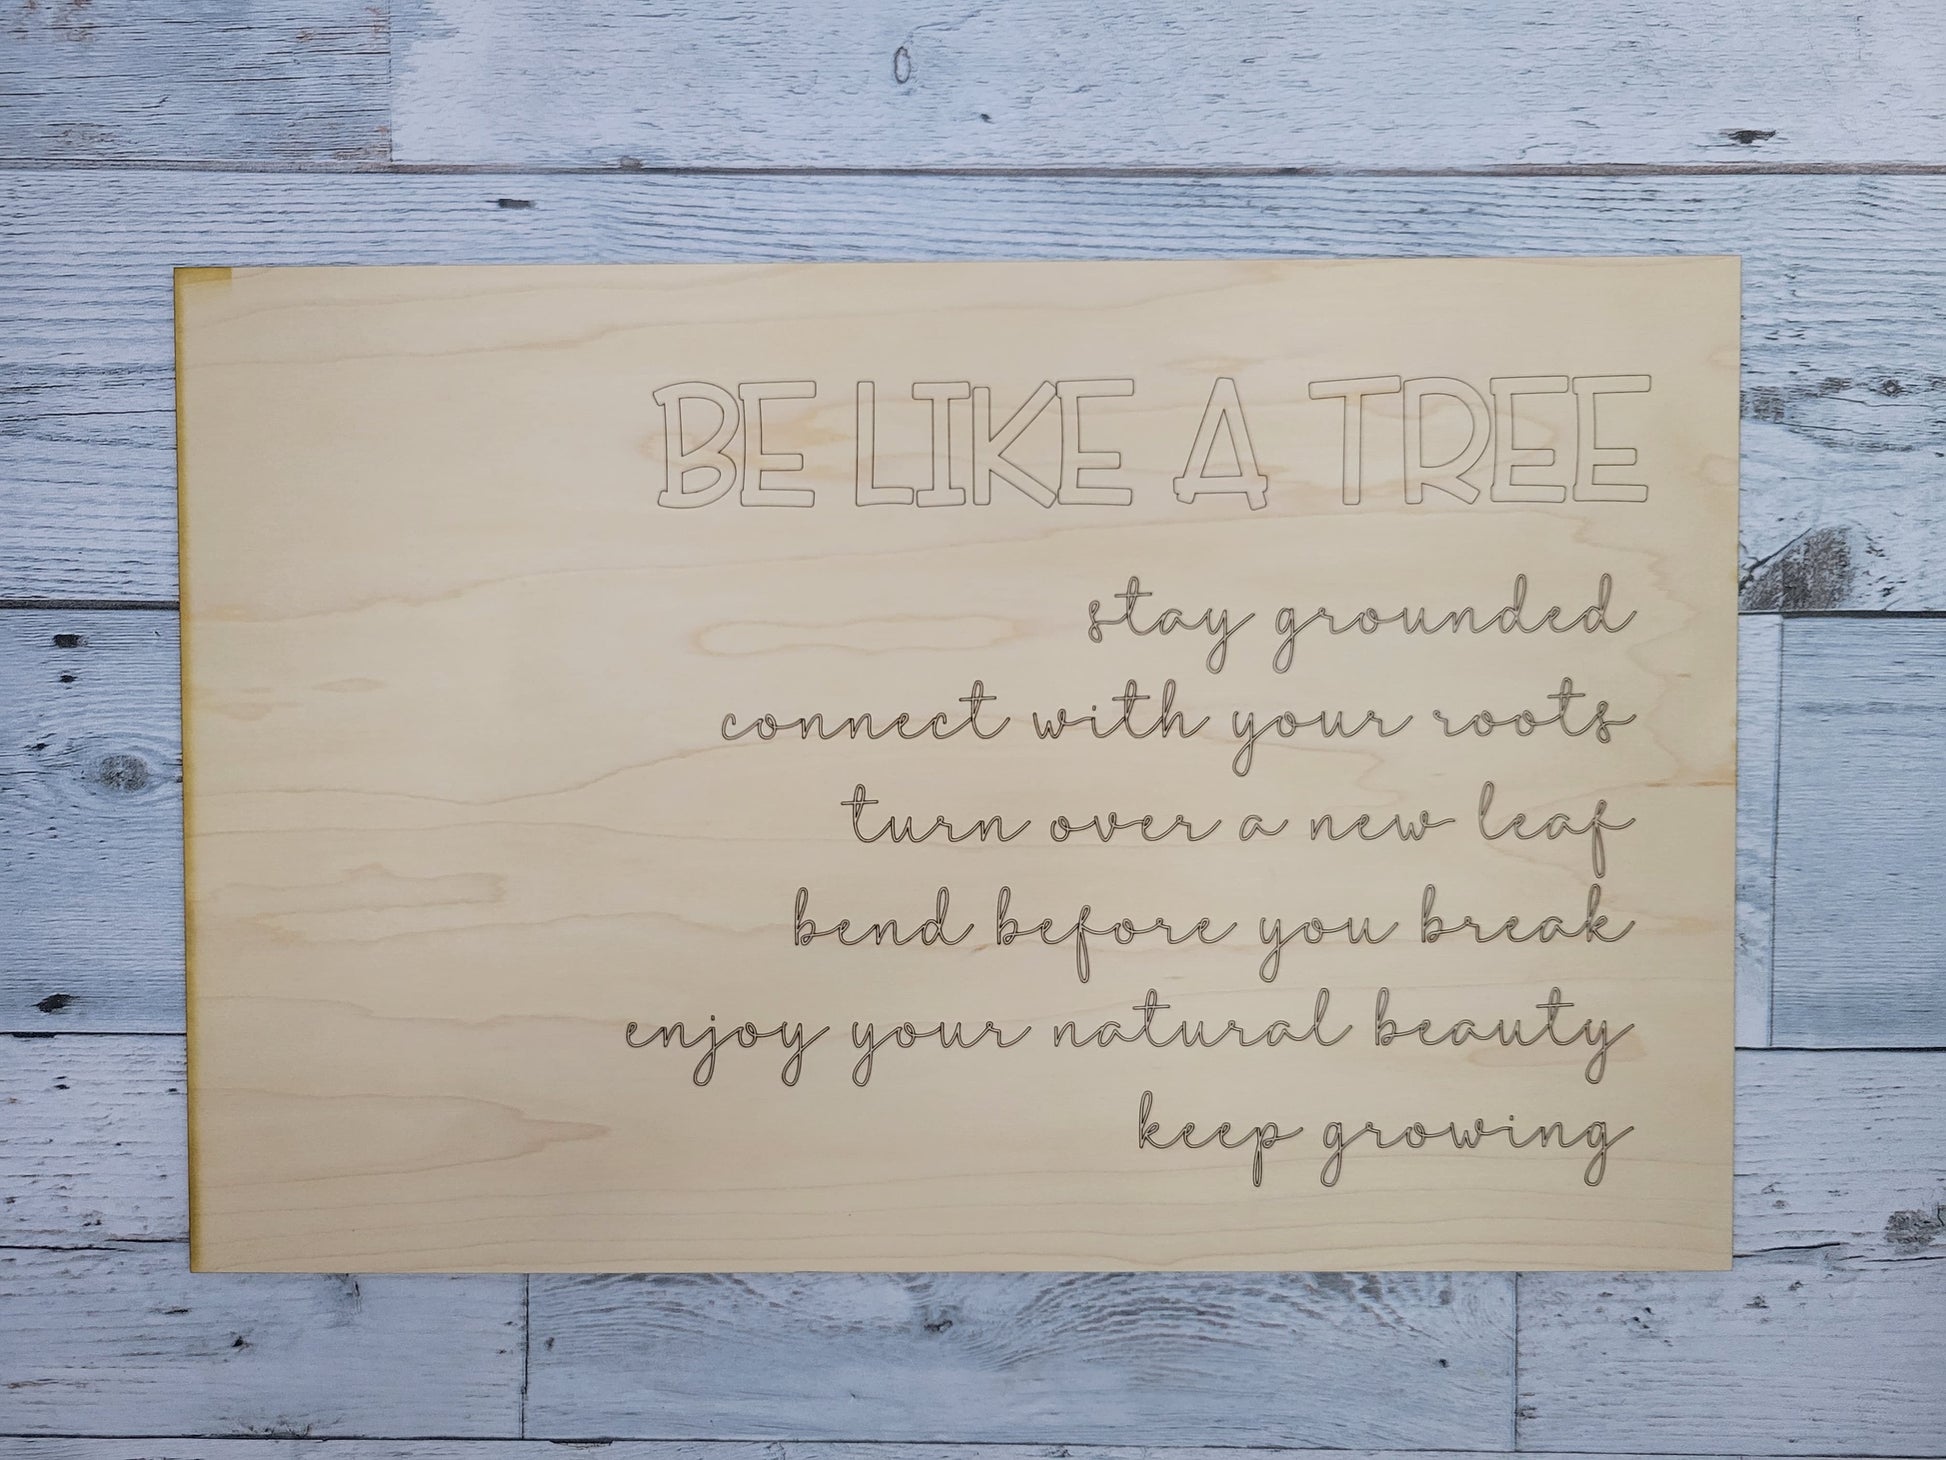 BE LIKE A TREE
stay grounded
connect with your roots
turn over a new leaf
bend before you break
enjoy your natural beauty
keep growing